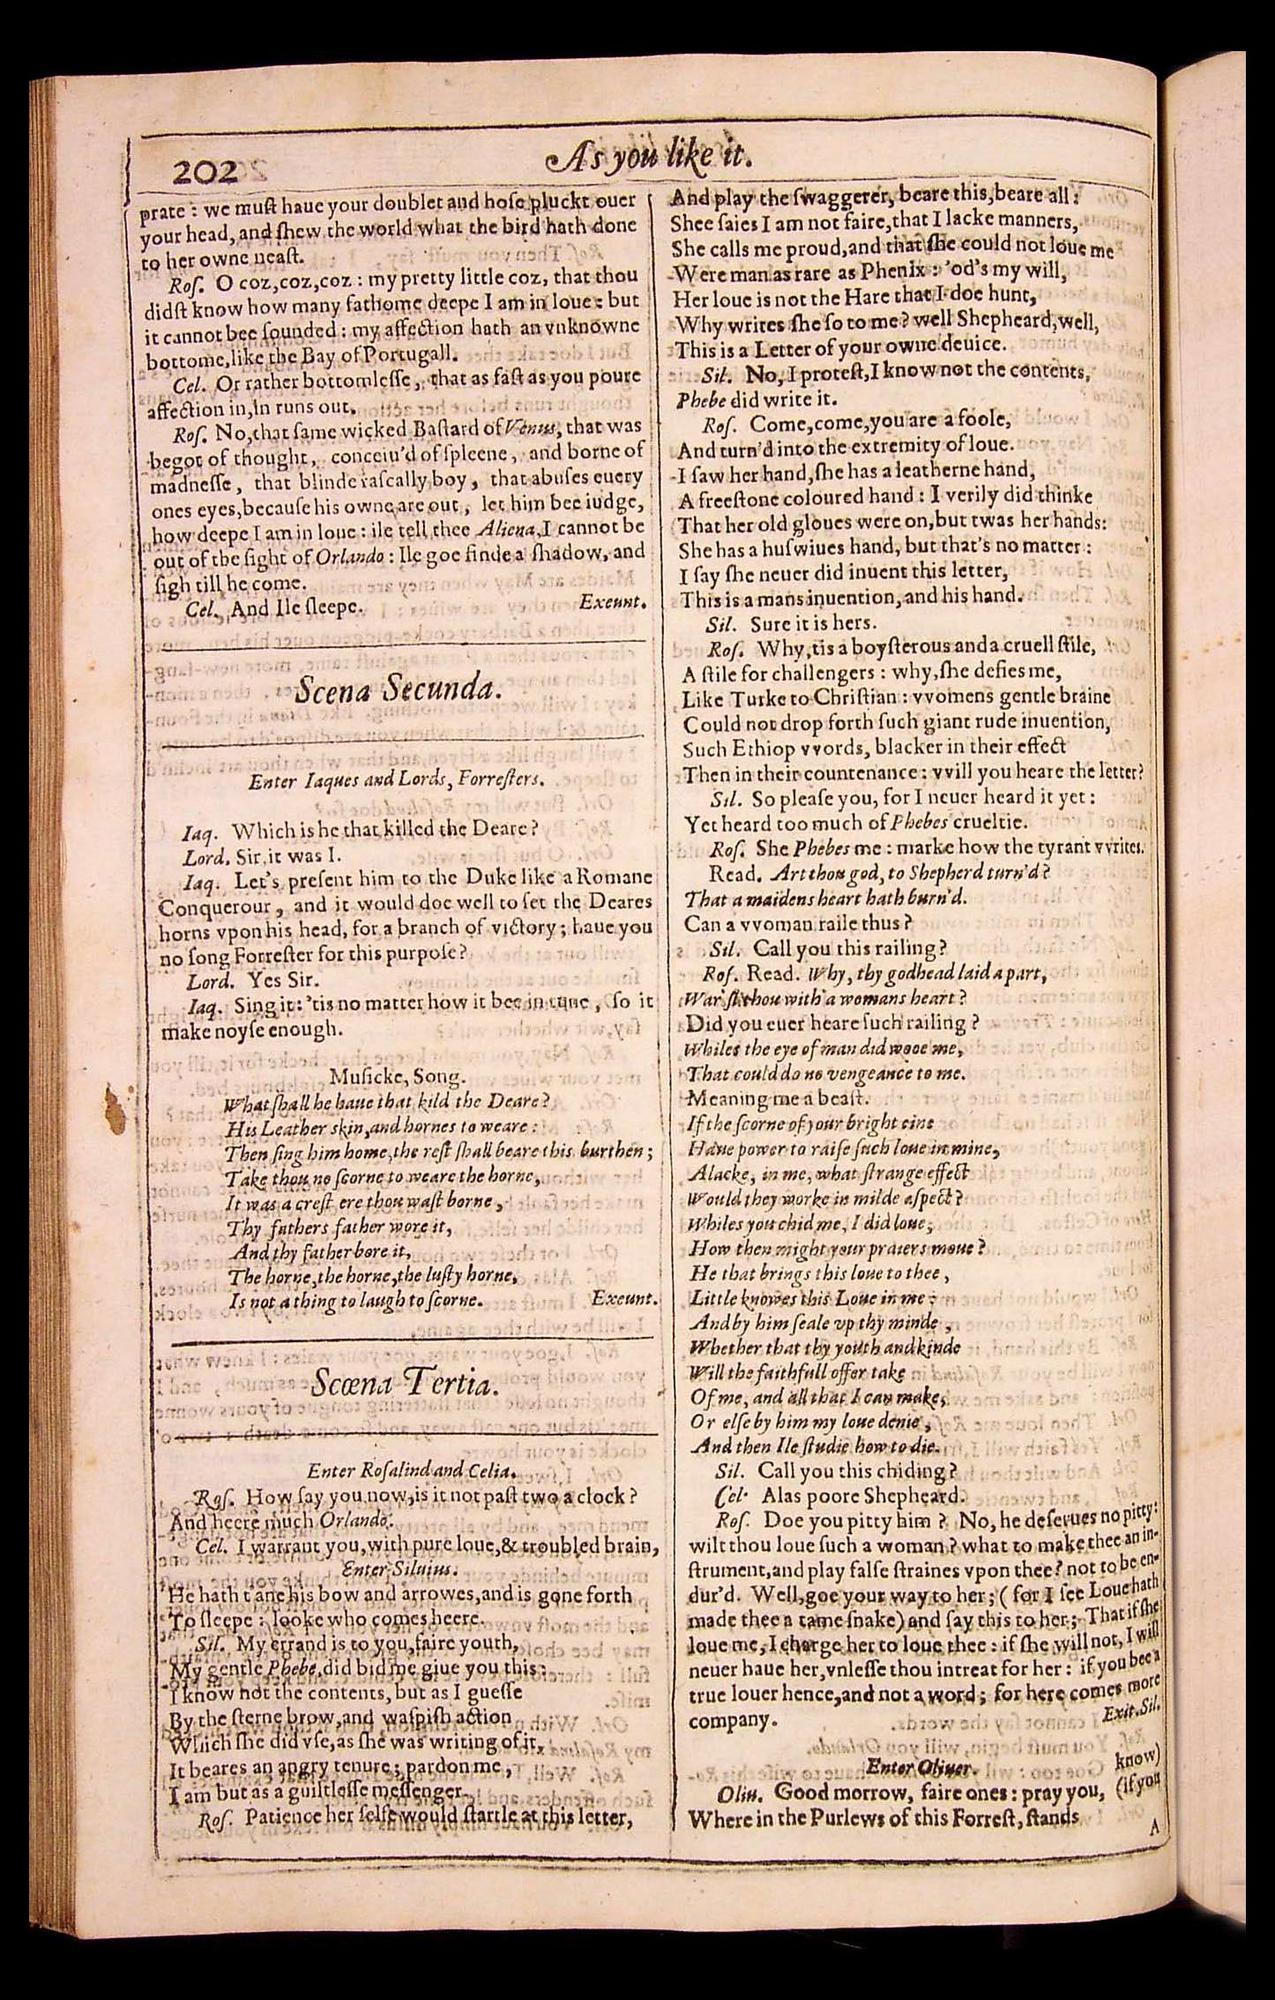 202
As you like it.
prate: we muſt haue your doublet and hoſe pluckt ouer
your head, and ſhew the world what the bird hath done
to her owne neaſt.
Roſ. O coz, coz, coz: my pretty little coz, that thou
didſt know how many fathome deepe I am in loue: but
it cannot bee ſounded: my affection hath an vnknowne
bottome, like the Bay of Portugall.
Cel. Or rather bottomleſſe, that as faſt as you poure
affection in, in runs out.
Roſ. No, that ſame wicked Baſtard of Venus, that was
begot of thought, conceiu'd of ſpleene, and borne of
madneſſe, that blinde raſcally boy, that abuſes euery
ones eyes, becauſe his owne are out, let him bee iudge,
how deepe I am in loue: ile tell thee Aliena, I cannot be
out of the ſight of Orlando: Ile goe finde a ſhadow, and
ſigh till he come.
Cel. And Ile ſleepe. Exeunt.
Scena Secunda.
Enter Iaques and Lords, Forreſters.
Iaq. Which is he that killed the Deare?
Lord. Sir, it was I.
Iaq. Let's preſent him to the Duke like a Romane
Conquerour, and it would doe well to ſet the Deares
horns vpon his head, for a branch of victory; haue you
no ſong Forreſter for this purpoſe?
Lord. Yes Sir.
Iaq. Sing it: 'tis no matter how it bee in tune, ſo it
make noyſe enough.
Muſicke, Song.
What ſhall he haue that kild the Deare?
His Leather skin, and hornes to weare:
Then ſing him home, the reſt ſhall beare this burthen;
Take thou no ſcorne to weare the horne,
It was a creſt ere thou waſt borne,
Thy fathers father wore it,
And thy father bore it,
The horne, the horne, the luſty horne,
Is not a thing to laugh to ſcorne. Exeunt.
Scœna Tertia.
Enter Roſalind and Celia.
Roſ. How ſay you now, is it not paſt two a clock?
And heere much Orlando.
Cel. I warrant you, with pure loue, & troubled brain,
Enter Siluius.
He hath t'ane his bow and arrowes, and is gone forth
To ſleepe: looke who comes heere.
Sil. My errand is to you, faire youth,
My gentle Phebe, did bid me giue you this:
I know not the contents, but as I gueſſe
By the ſterne brow, and waſpiſh action
Which ſhe did vſe, as ſhe was writing of it,
It beares an angry tenure; pardon me,
I am but as a guiltleſſe meſſenger.
Roſ. Patience her ſelfe would ſtartle at this letter,
And play the ſwaggerer, beare this, beare all:
Shee ſaies I am not faire, that I lacke manners,
She calls me proud, and that ſhe could not loue me
Were man as rare as Phenix: 'od's my will,
Her loue is not the Hare that I doe hunt,
Why writes ſhe ſo to me? well Shepheard, well,
This is a Letter of your owne deuice.
Sil. No, I proteſt, I know not the contents,
Phebe did write it.
Roſ. Come, come, you are a foole,
And turn'd into the extremity of loue.
I ſaw her hand, ſhe has a leatherne hand,
A freeſtone coloured hand: I verily did thinke
That her old gloues were on, but twas her hands:
She has a huſwiues hand, but that's no matter:
I ſay ſhe neuer did inuent this letter,
This is a mans inuention, and his hand.
Sil. Sure it is hers.
Roſ. Why, tis a boyſterous and a cruell ſtile,
A ſtile for challengers: why, ſhe defies me,
Like Turke to Chriſtian: vvomens gentle braine
Could not drop forth ſuch giant rude inuention,
Such Ethiop vvords, blacker in their effect
Then in their countenance: vvill you heare the letter?
Sil. So pleaſe you, for I neuer heard it yet:
Yet heard too much of Phebes crueltie.
Roſ. She Phebes me: marke how the tyrant vvrites.
Read. Art thou god, to Shepherd turn'd?
That a maidens heart hath burn'd.
Can a vvoman raile thus?
Sil. Call you this railing?
Roſ. Read. Why, thy godhead laid apart,
War'ſt thou with a womans heart?
Did you euer heare ſuch railing?
Whiles the eye of man did wooe me,
That could do no vengeance to me.
Meaning me a beaſt.
If the ſcorne of your bright eine
Haue power to raiſe ſuch loue in mine,
Alacke, in me, what ſtrange effect
Would they worke in milde aſpect?
Whiles you chid me, I did loue,
How then might your praiers moue?
He that brings this loue to thee,
Little knowes this Loue in me:
And by him ſeale vp thy minde,
Whether that thy youth and kinde
Will the faithfull offer take
Of me, and all that I can make,
Or elſe by him my loue denie,
And then Ile ſtudie how to die.
Sil. Call you this chiding?
Cel. Alas poore Shepheard.
Roſ. Doe you pitty him? No, he deſerues no pitty:
wilt thou loue ſuch a woman? what to make thee an in-
ſtrument, and play falſe ſtraines vpon thee? not to be en-
dur'd. Well, goe your way to her; (for I ſee Loue hath
made thee a tame ſnake) and ſay this to her; That if ſhe
loue me, I charge her to loue thee: if ſhe will not, I will
neuer haue her, vnleſſe thou intreat for her: if you bee a
true louer hence, and not a word; for here comes more
company. Exit. Sil.
Enter Oliuer.
Oliu. Good morrow, faire ones: pray you, (if you
know)
Where in the Purlews of this Forreſt, ſtands
A